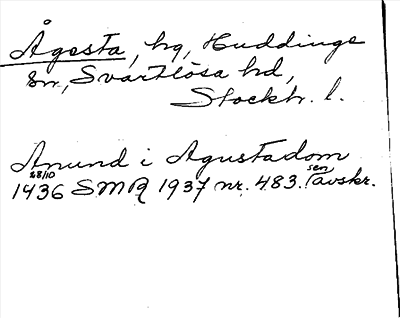 Ågesta, hg, Huddinge
sn, Svartlösa hd,
Stockh. l.
Anund i Agustadom
28/10
1436 SMR 1937 nr. 483. sen avskr.